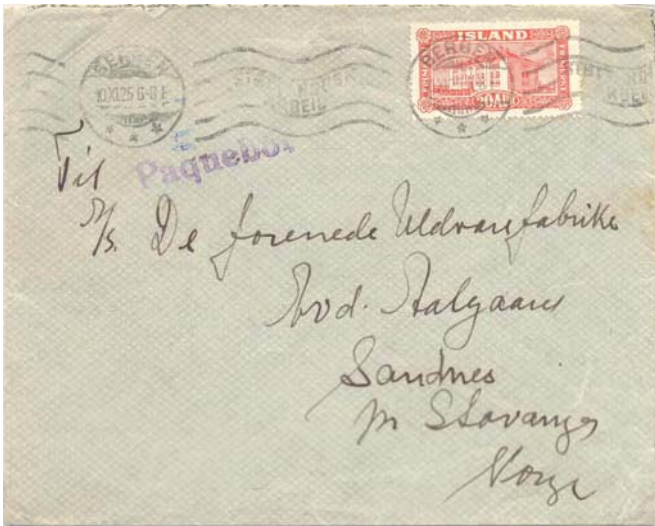 BERGEN
10.XI.25 6-8 E
ISLAND
BERGEN
20 AUR
Paquebot
Til
A/s. De forenede Uldvarefabriker
Avd. Aalgaard
Sandnes
pr Stavanger
Norge